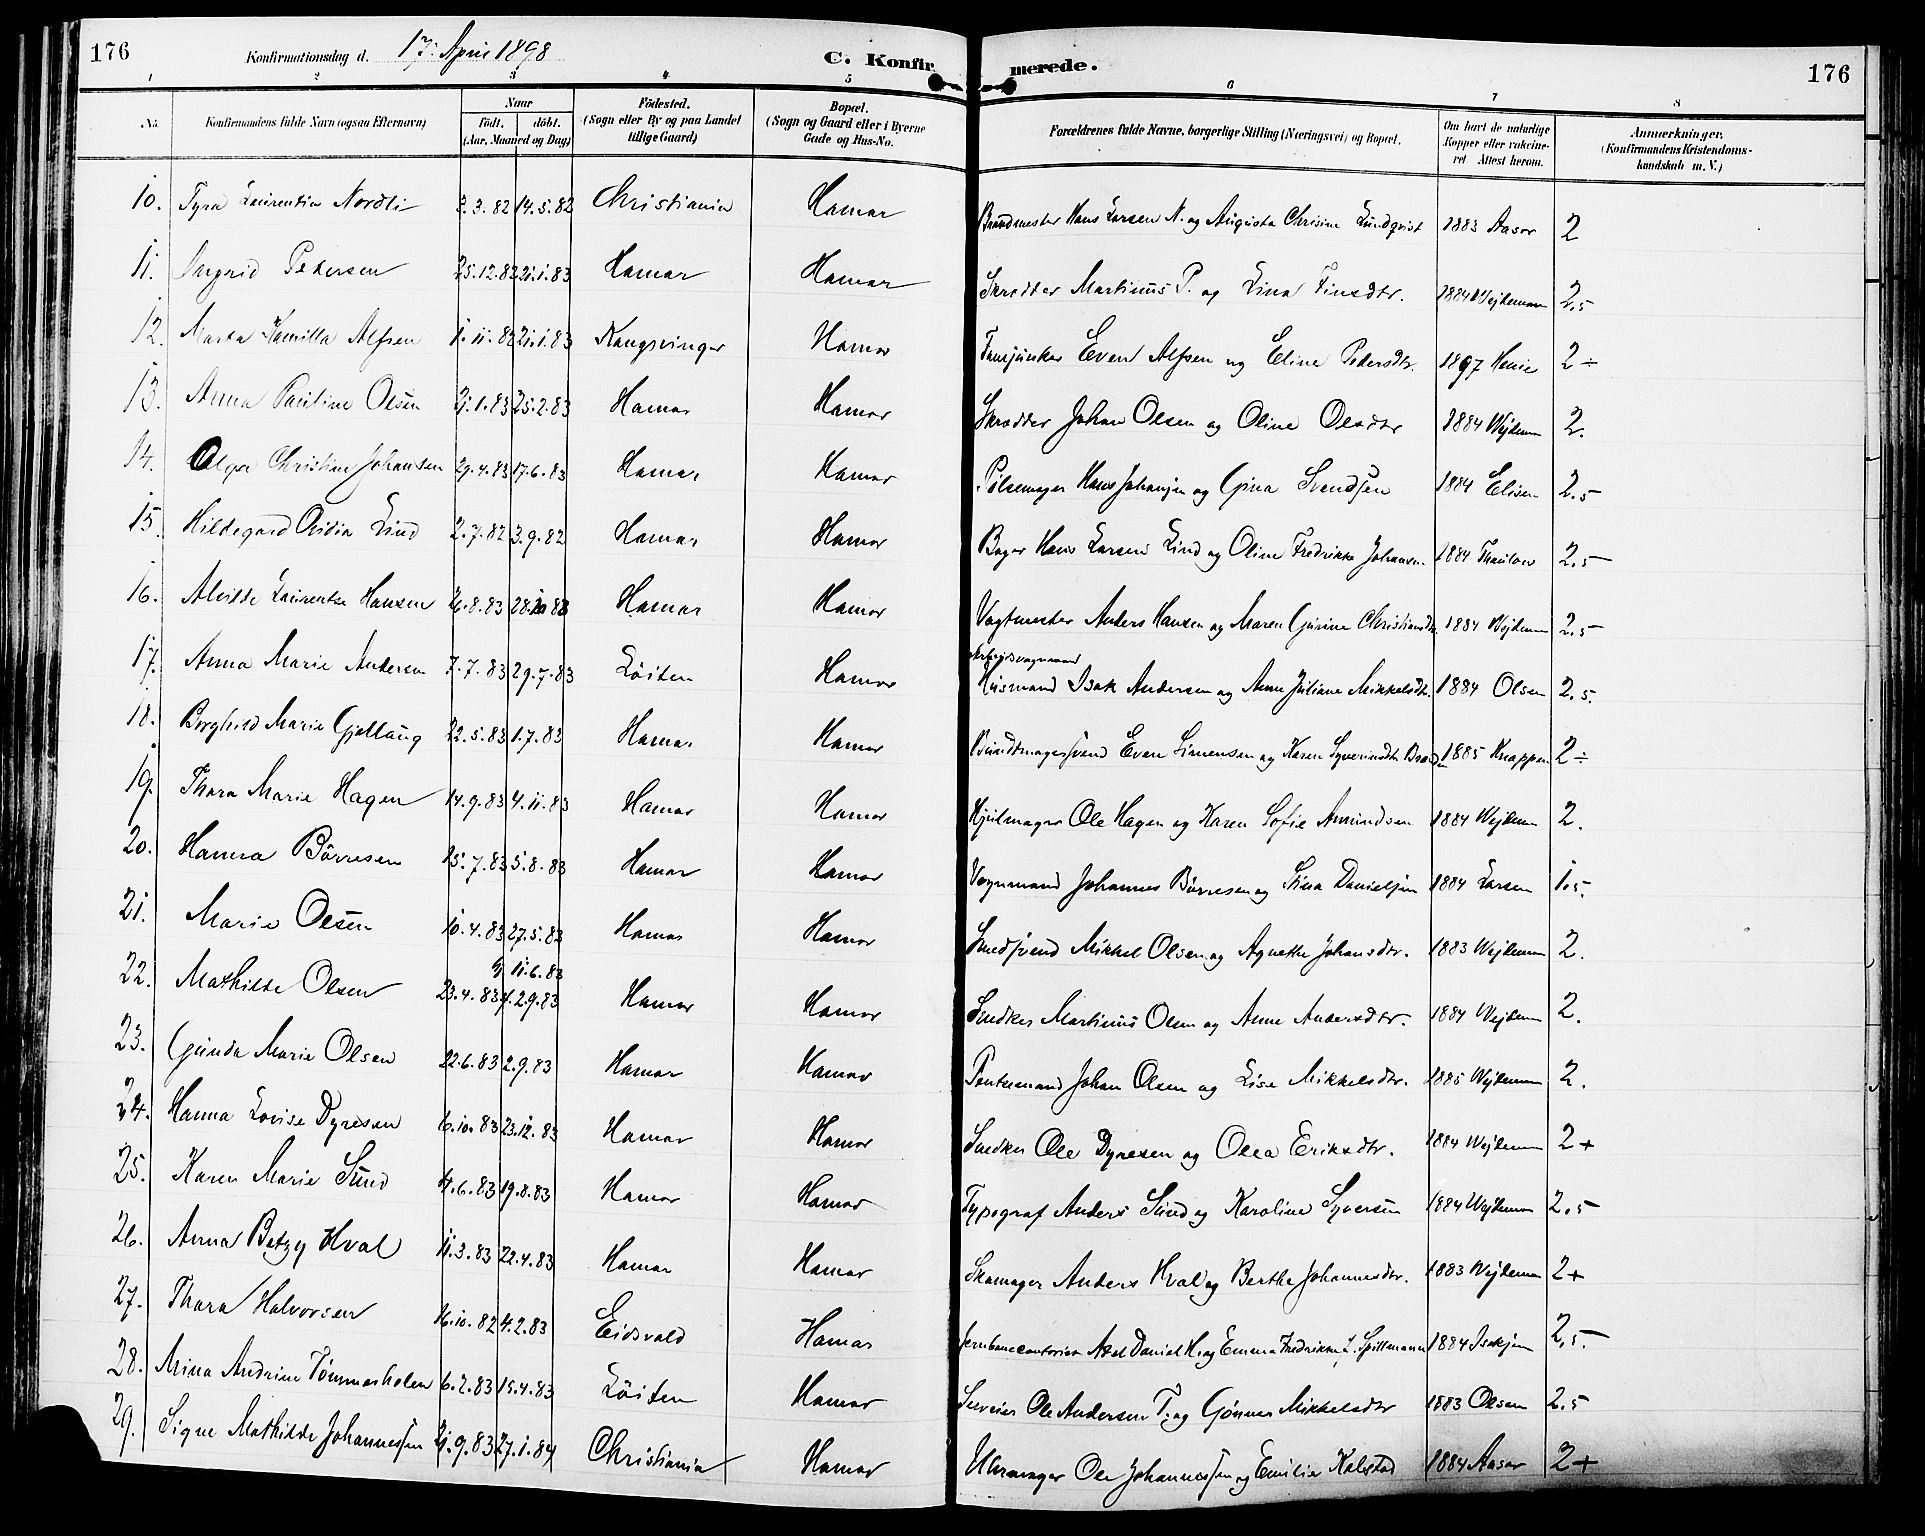 176 Konfirmationsdag d. 17. April 1898 C. Konfirmerede. 176
1 2 3 4 5 6 7 8
No. Konfirmandens fulde Navn (ogsaa Efternavn) Naar födt. döbt. (Aar, Maaned og Dag) Födested. (Sogn eller By og paa Landet tillige Gaard) Bopæl. (Sogn og Gaard eller i Byerne Gade og Hus-No. Forældrenes fulde Navne, borgerlige Stilling (Næringsvei) og Bopæl. Om havt de naturlige Kopper eller vakcineret Attest herom. Anmærkninger. (Konfirmandens Kristendomskundskab m. V.)
10. Tyra Laurentia Nordli 3.3.82 14.5.82 Christiania Hamar Brandmester Hans Larsen N. og Augusta Chrisine Lundqvist 1883 Aasar 2
11. Ingrid Pedersen 25.12.82 21.1.83 Hamar Hamar Skrædder Martinus P. og Lina Finsdtr. 1884 Wejdeman 2,5
12. Marta Kamilla Alfsen 1.11.82 21.1.83 Kongsvinger Hamar Fanejunker Even Alfsen og Eline Pedersdtr. 1897 Henie 2 ÷
13. Anna Pauline Olsen 21.1.83 25.2.83 Hamar Hamar Skrædder Johan Olsen og Oline Olsdtr 1884 Wejdeman 2.
14. Olga Christine Johansen 29.4.83 17.6.83 Hamar Hamar Pølsemager Hans Johansen og Gina Svendsen 1884 Elisen 2,5
15. Hildegard Ovidia Lind 2.7.82 3.9.82 Hamar Hamar Bager Hans Larsen Lind og Oline Fredrikke Johansen. 1884 Thaulow 2,5
16. Alvilde Laurentse Hansen 26.8.83 28.10.83 Hamar Hamar Vagtmester Anders Hansen og Maren Gurine Christiansdtr. 1884 Wejdeman 2,5
17. Anna Marie Andersen 7.7.83 29.7.83 Löiten Hamar Husmand Isak Andersen og Anne Juliane Mikkelsdtr. 1884 Olsen 2,5.
18. Borghild Marie Gjellaug 22.5.83 1.7.83 Hamar Hamar Bundtmagersvend Even Simensen og Karen Syverinsdtr 1885 Knappen 2 ÷
19. Thora Marie Hagen 14.9.83 4.11.83 Hamar Hamar Hjulmager Ole Hagen og Karen Sofie Amundsen 1884 Wejdeman 2.
20. Hanna Börresen 15.7.83 5.8.83 Hamar Hamar Vognmand Johannes Börresen og Stina Danielsen 1884 Larsen 1,5
21. Marie Olsen 10.4.83 27.5.83 Hamar Hamar Smedsvend Mikkel Olsen og Agnethe Johansdtr. 1883 Wejdeman 2.
22. Mathilde Olsen 23.4.83 11.6.83 2.9.83 Hamar Hamar Snedker Martinus Olsen og Anne Andersdtr. 1884 Wejdeman 2.
23. Gunda Marie Olsen 22.6.83 2.9.83 Hamar Hamar Johan Olsen og Lise Mikkelsdtr. 1885 Wejdeman 2.
24. Hanna Lovise Dyresen 6.10.83 23.12.83 Hamar Hamar Snedker Ole Dyresen og Olea Eriksdtr. 1884 Wejdeman 2+
25. Karen Marie Sund 4.6.83 19.8.83 Hamar Hamar Typograf Anders Sund og Karoline Syversen 1884 Wejdeman 2,5
26. Anna Betzy Hval 11.3.83 22.4.83 Hamar Hamar Skomager Anders Hval og Berthe Johannesdtr. 1883 Wejdeman 2+
27. Thora Halvorsen 16.10.82 4.2.83 Eidsvold Hamar Axel Daniel H. og Emma Fredrikke J. Spillmann 1884 Isaksen 2,5.
28. Mina Andrine Tømmerholen 6.2.83 15.4.83 Löiten Hamar Ole Andersen T. og Gönner Mikkelsdtr 1883 Olsen 2,5
29. Signe Mathilde Johannessen 21.9.83 27.1.84 Christiania Hamar Uhrmager Ole Johannessen og Emilie Kolstad 1884 Aasar 2+